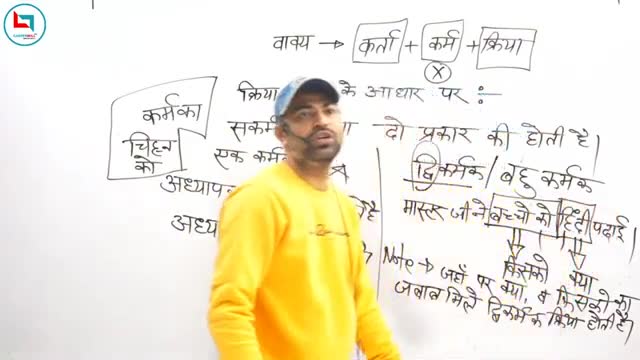 वाक्य → कर्ता + कर्म + क्रिया
X
क्रिया के आधार पर :-
कर्म का
चिह्न
को
सकर्म दो प्रकार की होती है।
एक कर्म
द्विकर्मक / बहुकर्मक
मास्टर जी ने बच्चों को हिंदी पढ़ाई।
किसको क्या
Note → जहाँ पर क्या, व किसको का
जवाब मिले द्विकर्मक क्रिया होती है।